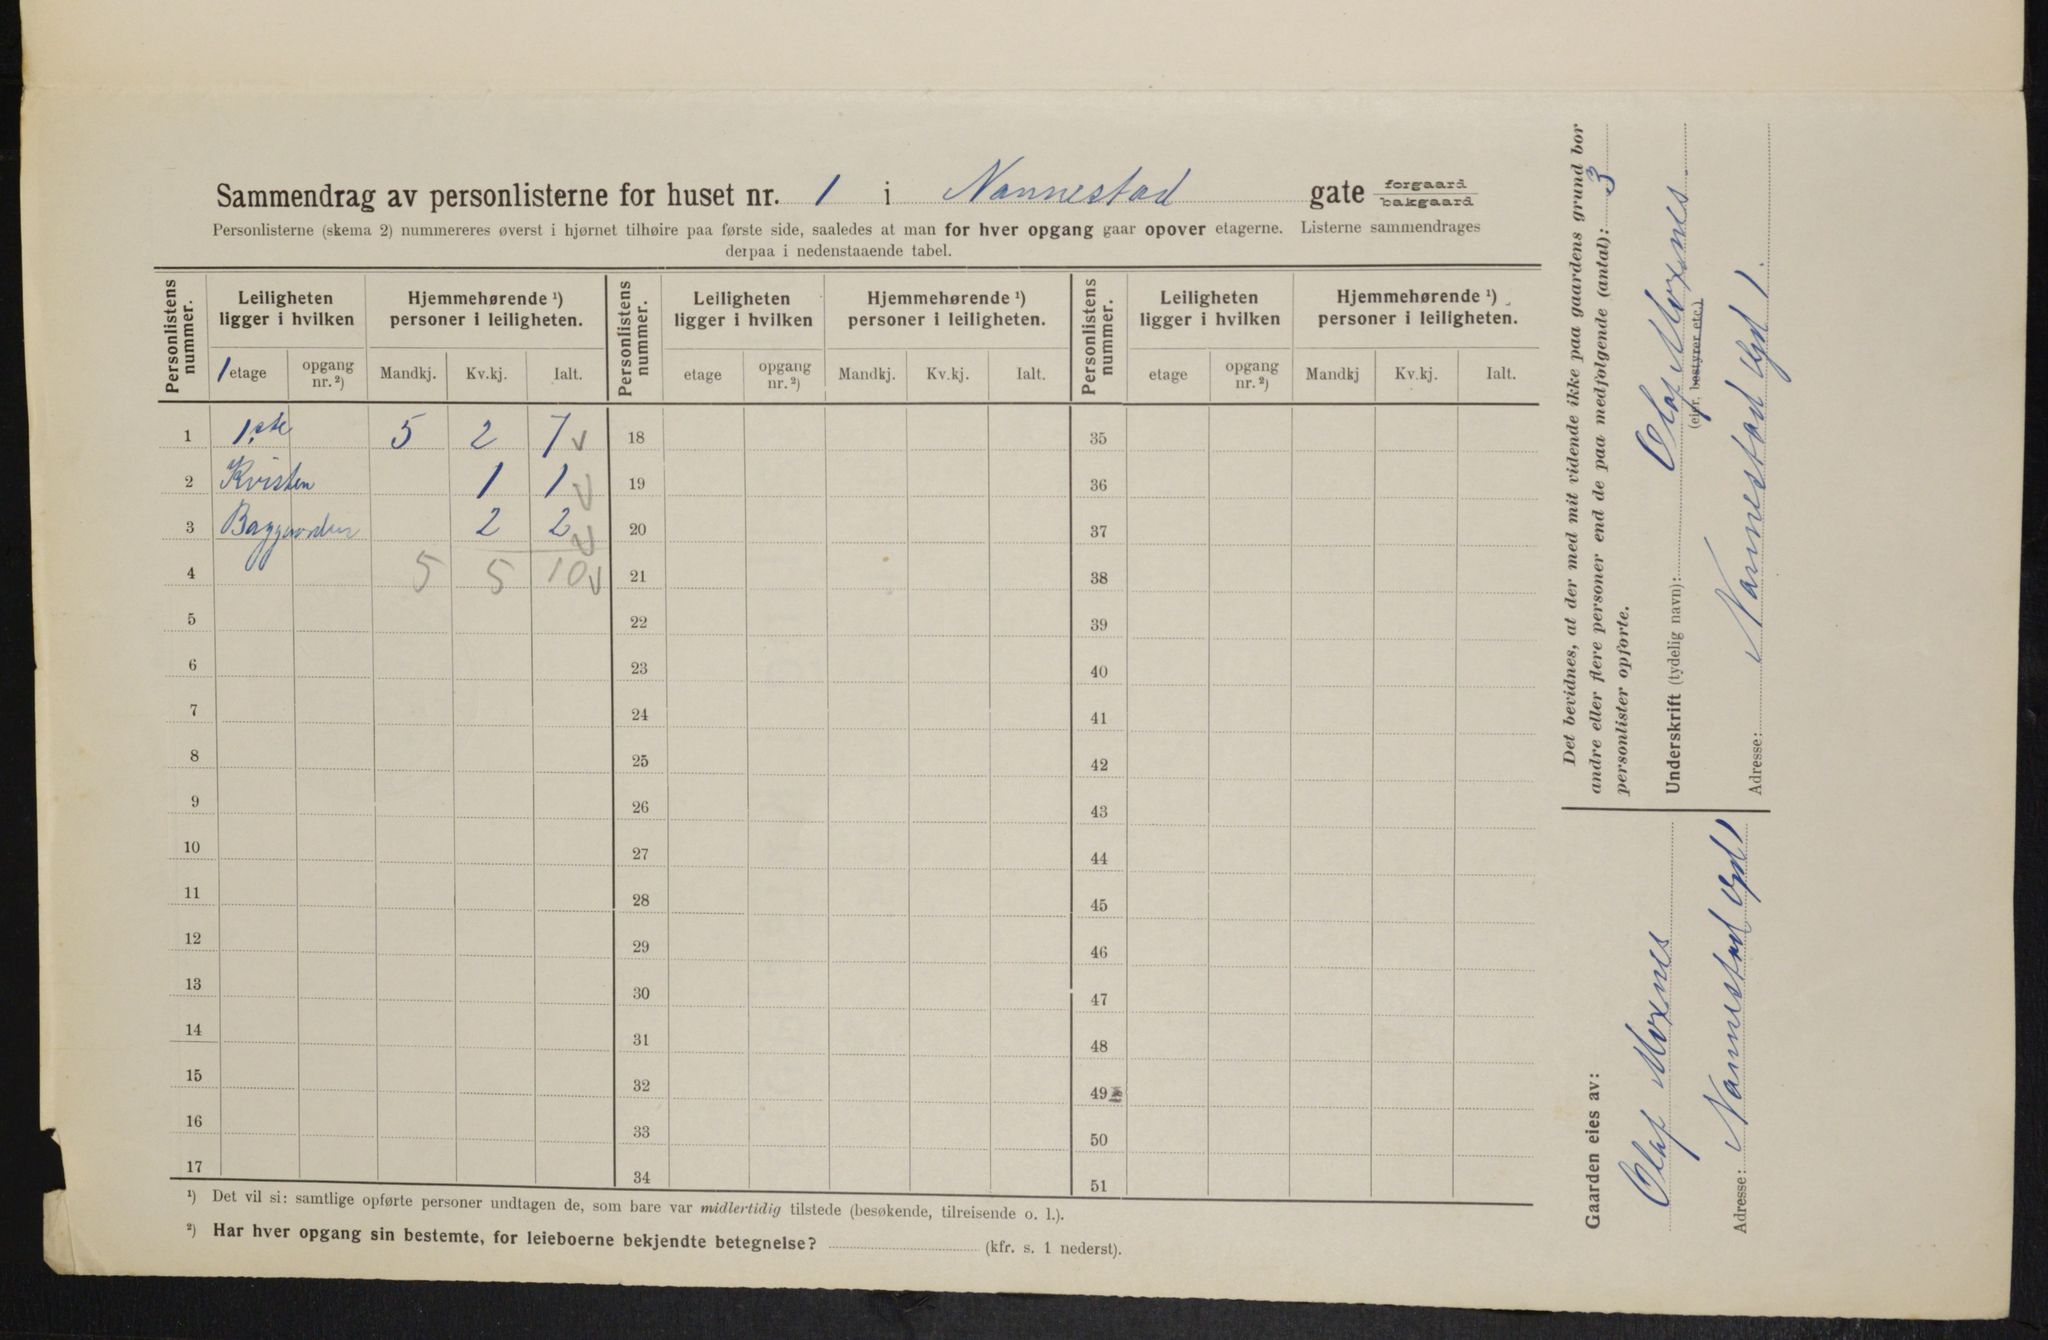 Sammendrag av personlisterne for huset nr. 1 i Nannestad gate forgaard bakgaard
Personlisterne (skema 2) nummereres øverst i hjørnet tilhøire paa første side, saaledes at man for hver opgang gaar opover etagerne. Listerne sammendrages
derpaa i nedenstaaende tabel.
Personlistens nummer. Leiligheten ligger i hvilken Hjemmehørende ¹) personer i leiligheten. Personlistens nummer. Leiligheten ligger i hvilken Hjemmehørende ¹) personer i leiligheten. Personlistens nummer. Leiligheten ligger i hvilken Hjemmehørende ¹) personer i leiligheten.
1 etage opgang nr. ²) Mandkj. Kv.kj. Ialt. etage opgang nr. ²) Mandkj. Kv.kj. Ialt. etage opgang nr. ²) Mandkj Kv.kj. Ialt.
1 1.ste 5 2 7 18 35
2 Kvisten 1 1 19 36
3 Baggaarden 2 2 20 37
4 5 5 10 21 38
5 22 39
6 23 40
7 24 41
8 25 42
9 26 43
10 27 44
11 28 45
12 29 46
13 30 47
14 31 48
15 32 49
16 33 50
17 34 51
¹) Det vil si: samtlige opførte personer undtagen de, som bare var midlertidig tilstede (besøkende, tilreisende o. l.).
²) Har hver opgang sin bestemte, for leieboerne bekjendte betegnelse? (kfr. s. 1 nederst).
Det bevidnes, at der med mit vidende ikke paa gaardens grund bor
andre eller flere personer end de paa medfølgende (antal): 3
personlister opførte.
Underskrift (tydelig navn): Olaf Moxnes
(eier, bestyrer etc.)
Adresse: Nannestad gd 1.
Gaarden eies av:
Olaf Moxnes
Adresse: Nannestad gd 1